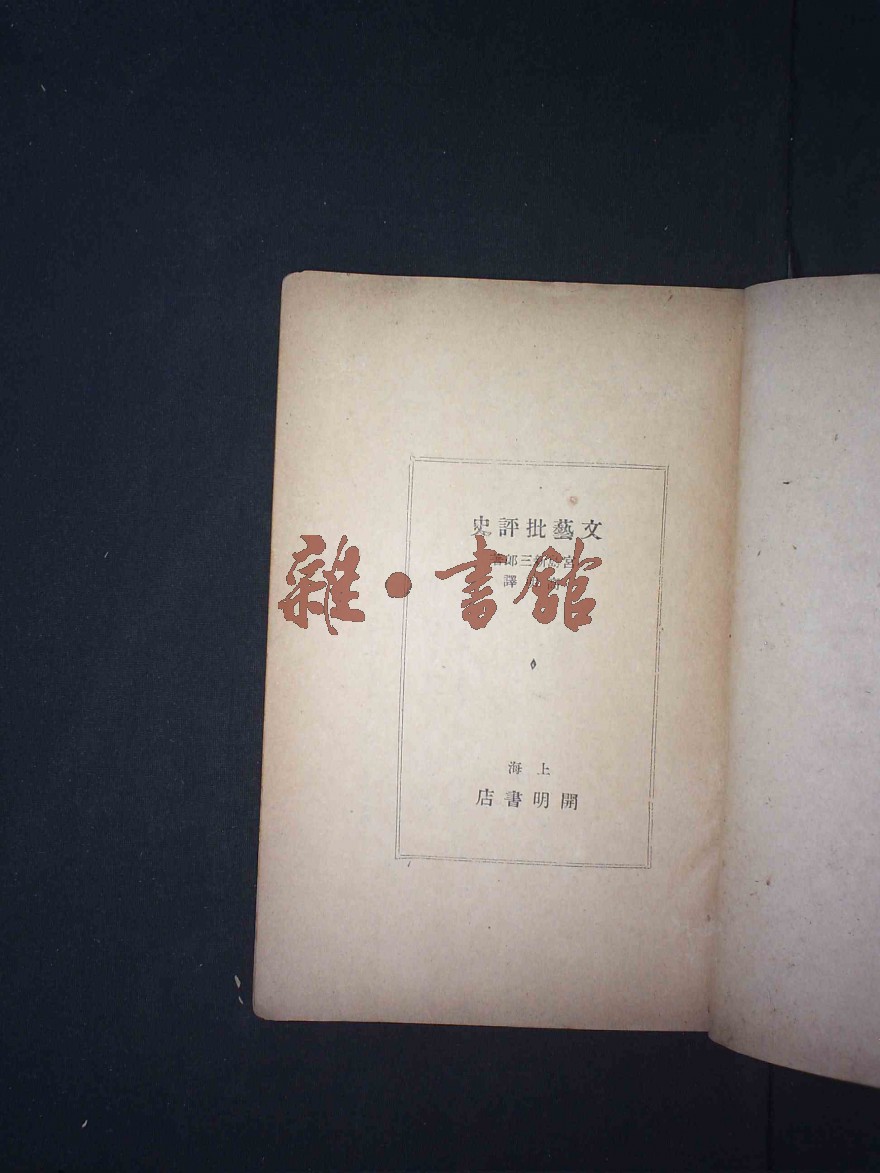 文藝批評史
宮島新三郎著
譯
上海
開明書店
雜·書館